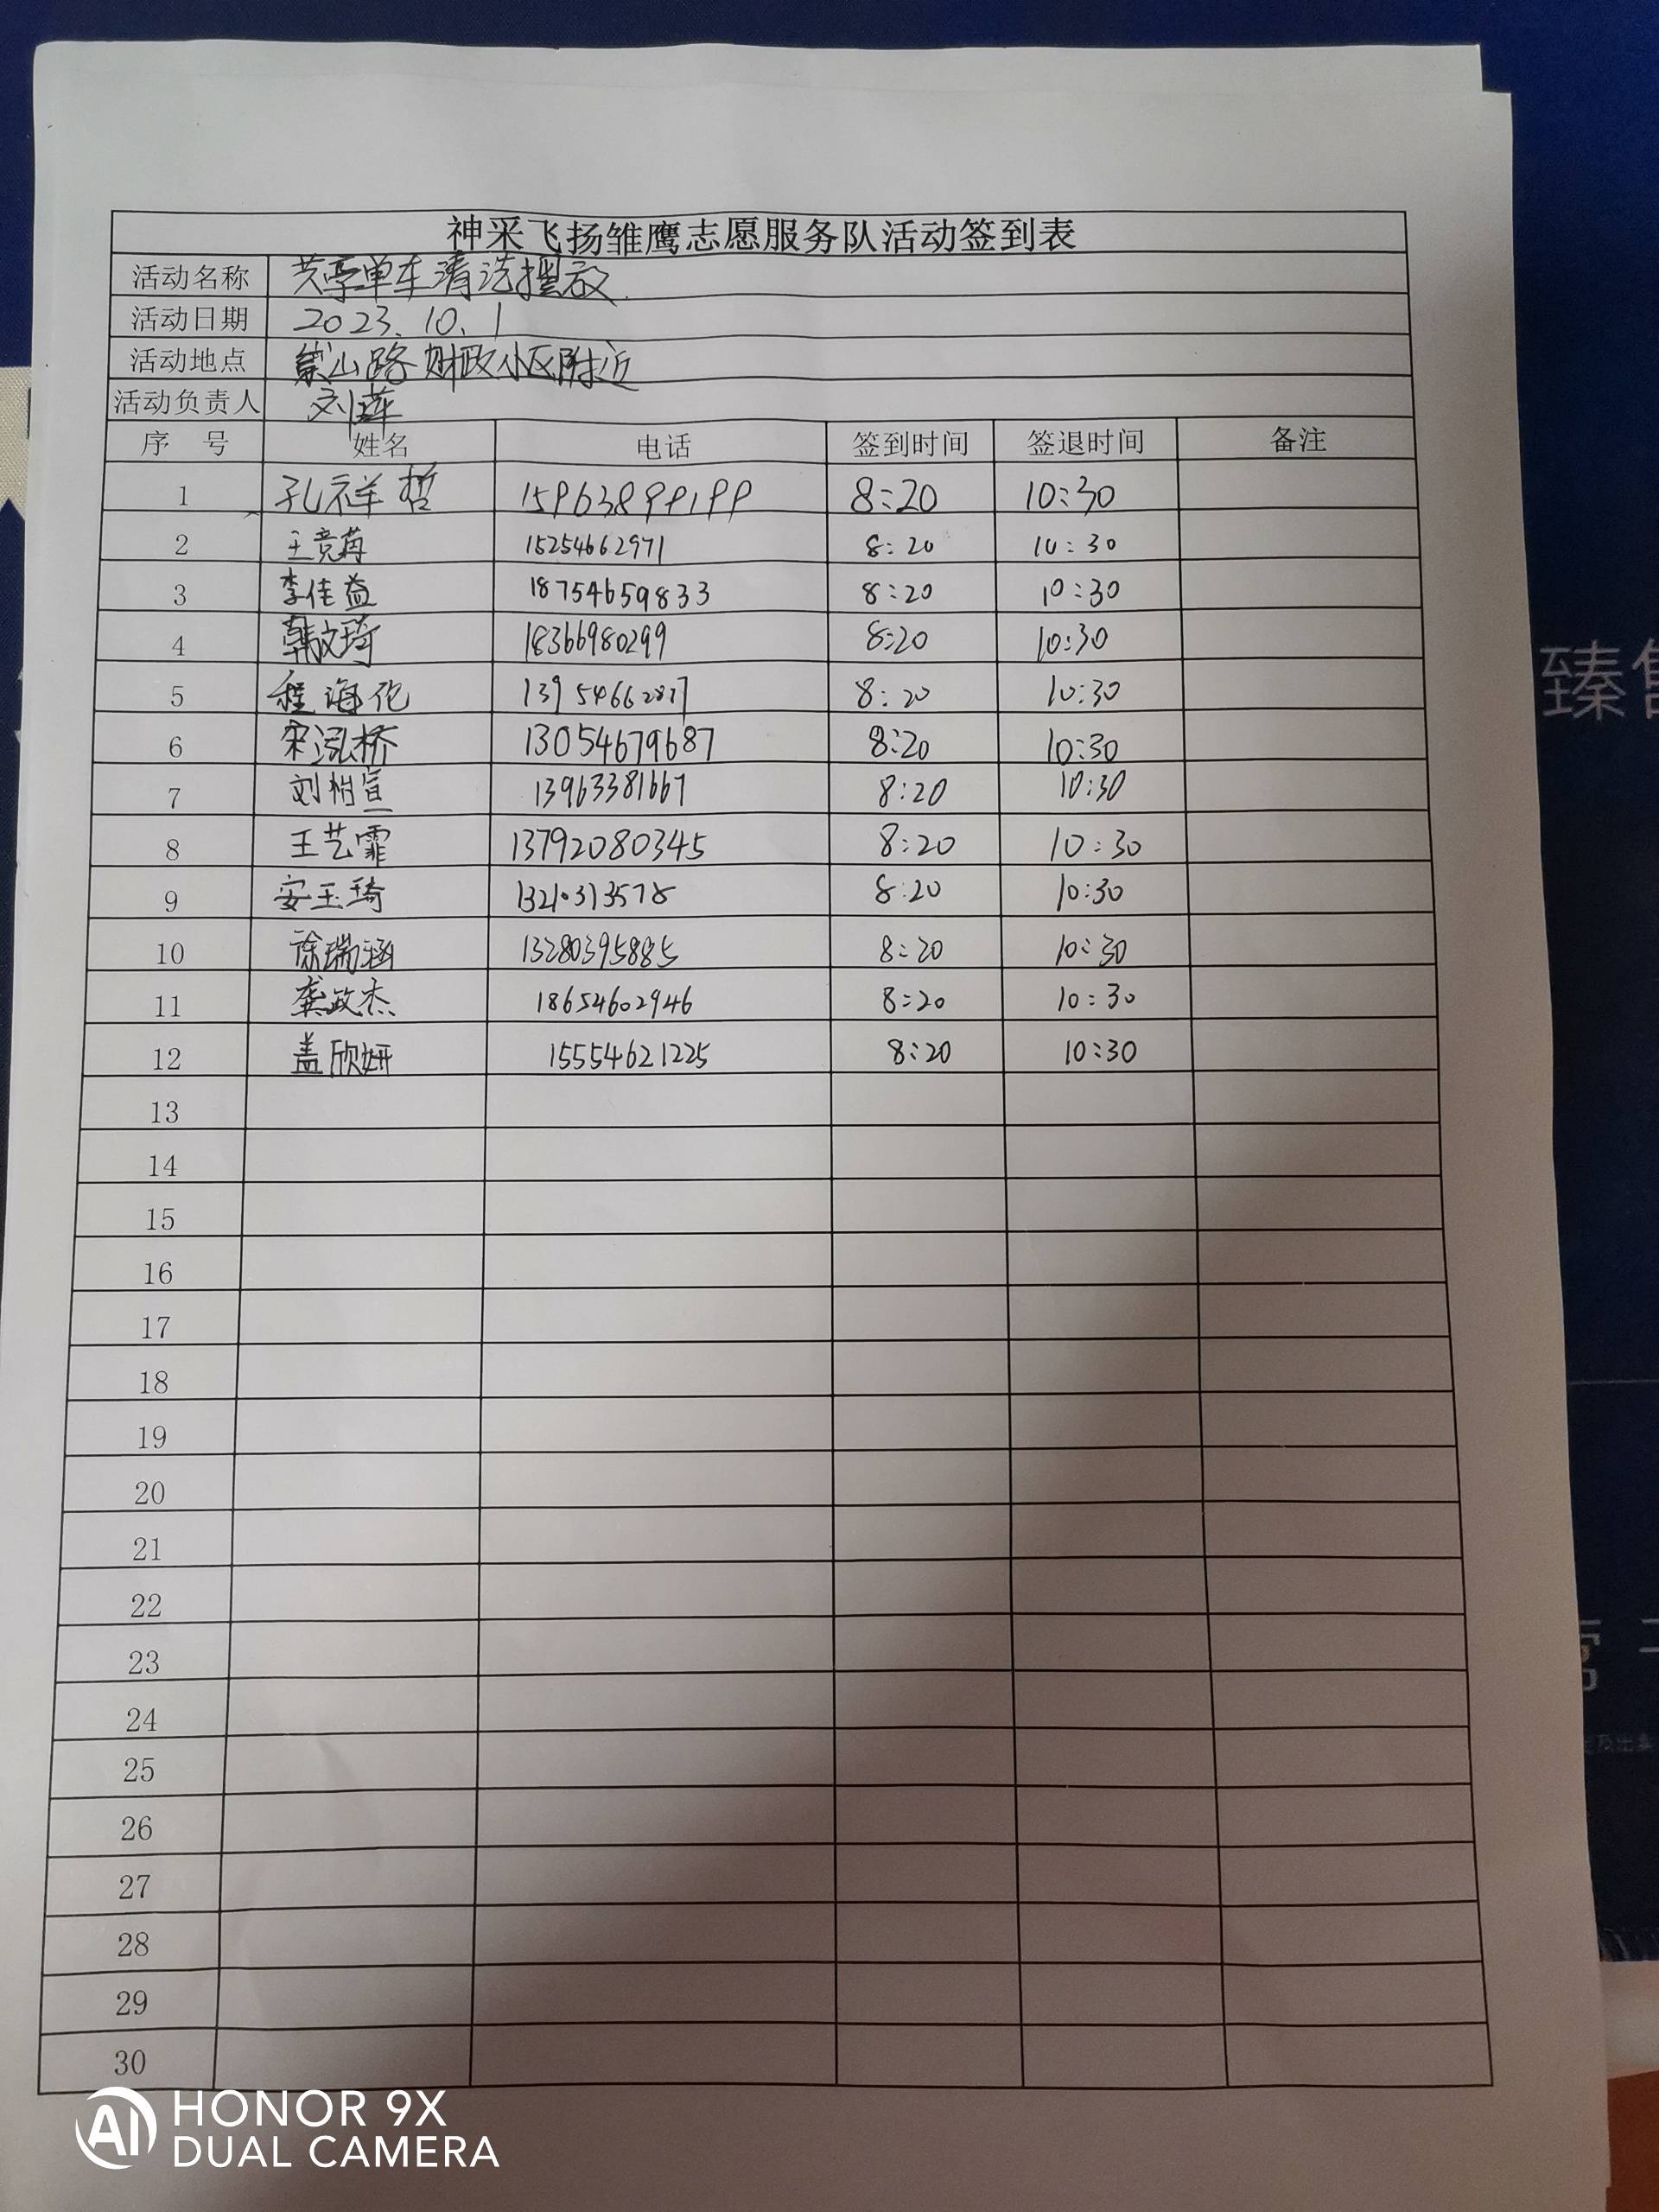 神采飞扬雏鹰志愿服务队活动签到表
活动名称 共享单车清洗摆放
活动日期 2023.10.1
活动地点 嵩山路财政小区附近
活动负责人 刘莲
序号 姓名 电话 签到时间 签退时间 备注
1 孔祥哲 15963899199 8:20 10:30
2 王竞苒 15254662971 8:20 10:30
3 李佳益 18754659833 8:20 10:30
4 韩文琦 18366980299 8:20 10:30
5 程海伦 8:20 10:30
6 宋泓桥 13054679687 8:20 10:30
7 刘怡萱 13963381667 8:20 10:30
8 王艺霏 13792080345 8:20 10:30
9 安玉琦 13210313578 8:20 10:30
10 徐瑞涵 13280395885 8:20 10:30
11 龚政杰 18654602946 8:20 10:30
12 盖欣妍 15554621225 8:20 10:30
13
14
15
16
17
18
19
20
21
22
23
24
25
26
27
28
29
30
臻
HONOR 9X
DUAL CAMERA